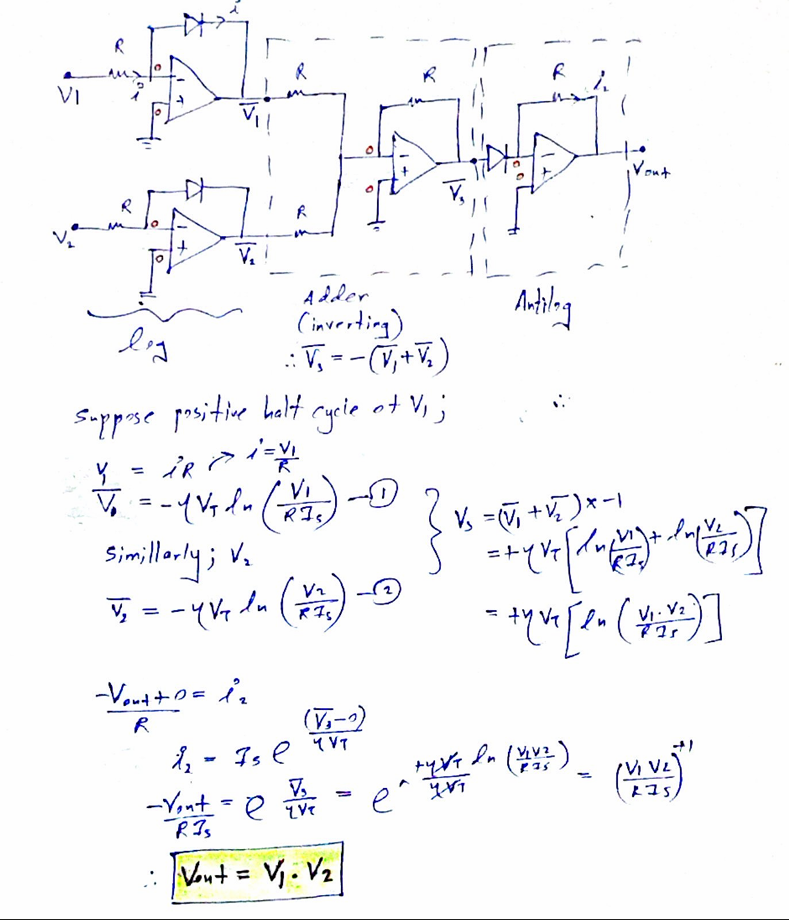 R i
V1 i R R R i₂
0 − 0 + V̄₁ 0 − 0 + V̄₃ 0 − 0 + Vout
R R
V₂ 0 − 0 + V̄₂
log
Adder
(inverting)
∴ V̄₃ = −(V̄₁+V̄₂)
Antilog
suppose positive half cycle of V₁; ∴
V₁ = iR → i = V1/R
V̄₀ = −ηV_T ln (V1/RIs) — ①
Simillarly; V₂
V̄₂ = −ηV_T ln (V2/RIs) — ②
} V₃ = (V̄₁ + V̄₂) × −1
= +ηV_T [ln(V1/RIs) + ln(V2/RIs)]
= +ηV_T [ln (V₁·V₂/RIs)]
(−Vout+0)/R = i₂
i₂ = Is e^((V̄₃−0)/ηV_T)
−Vout/RIs = e^(V̄₃/ηV_T) = e^(+ηV_T/ηV_T ln (V1V2/RIs)) = (V₁V₂/RIs)^+1
∴ Vout = V₁·V₂